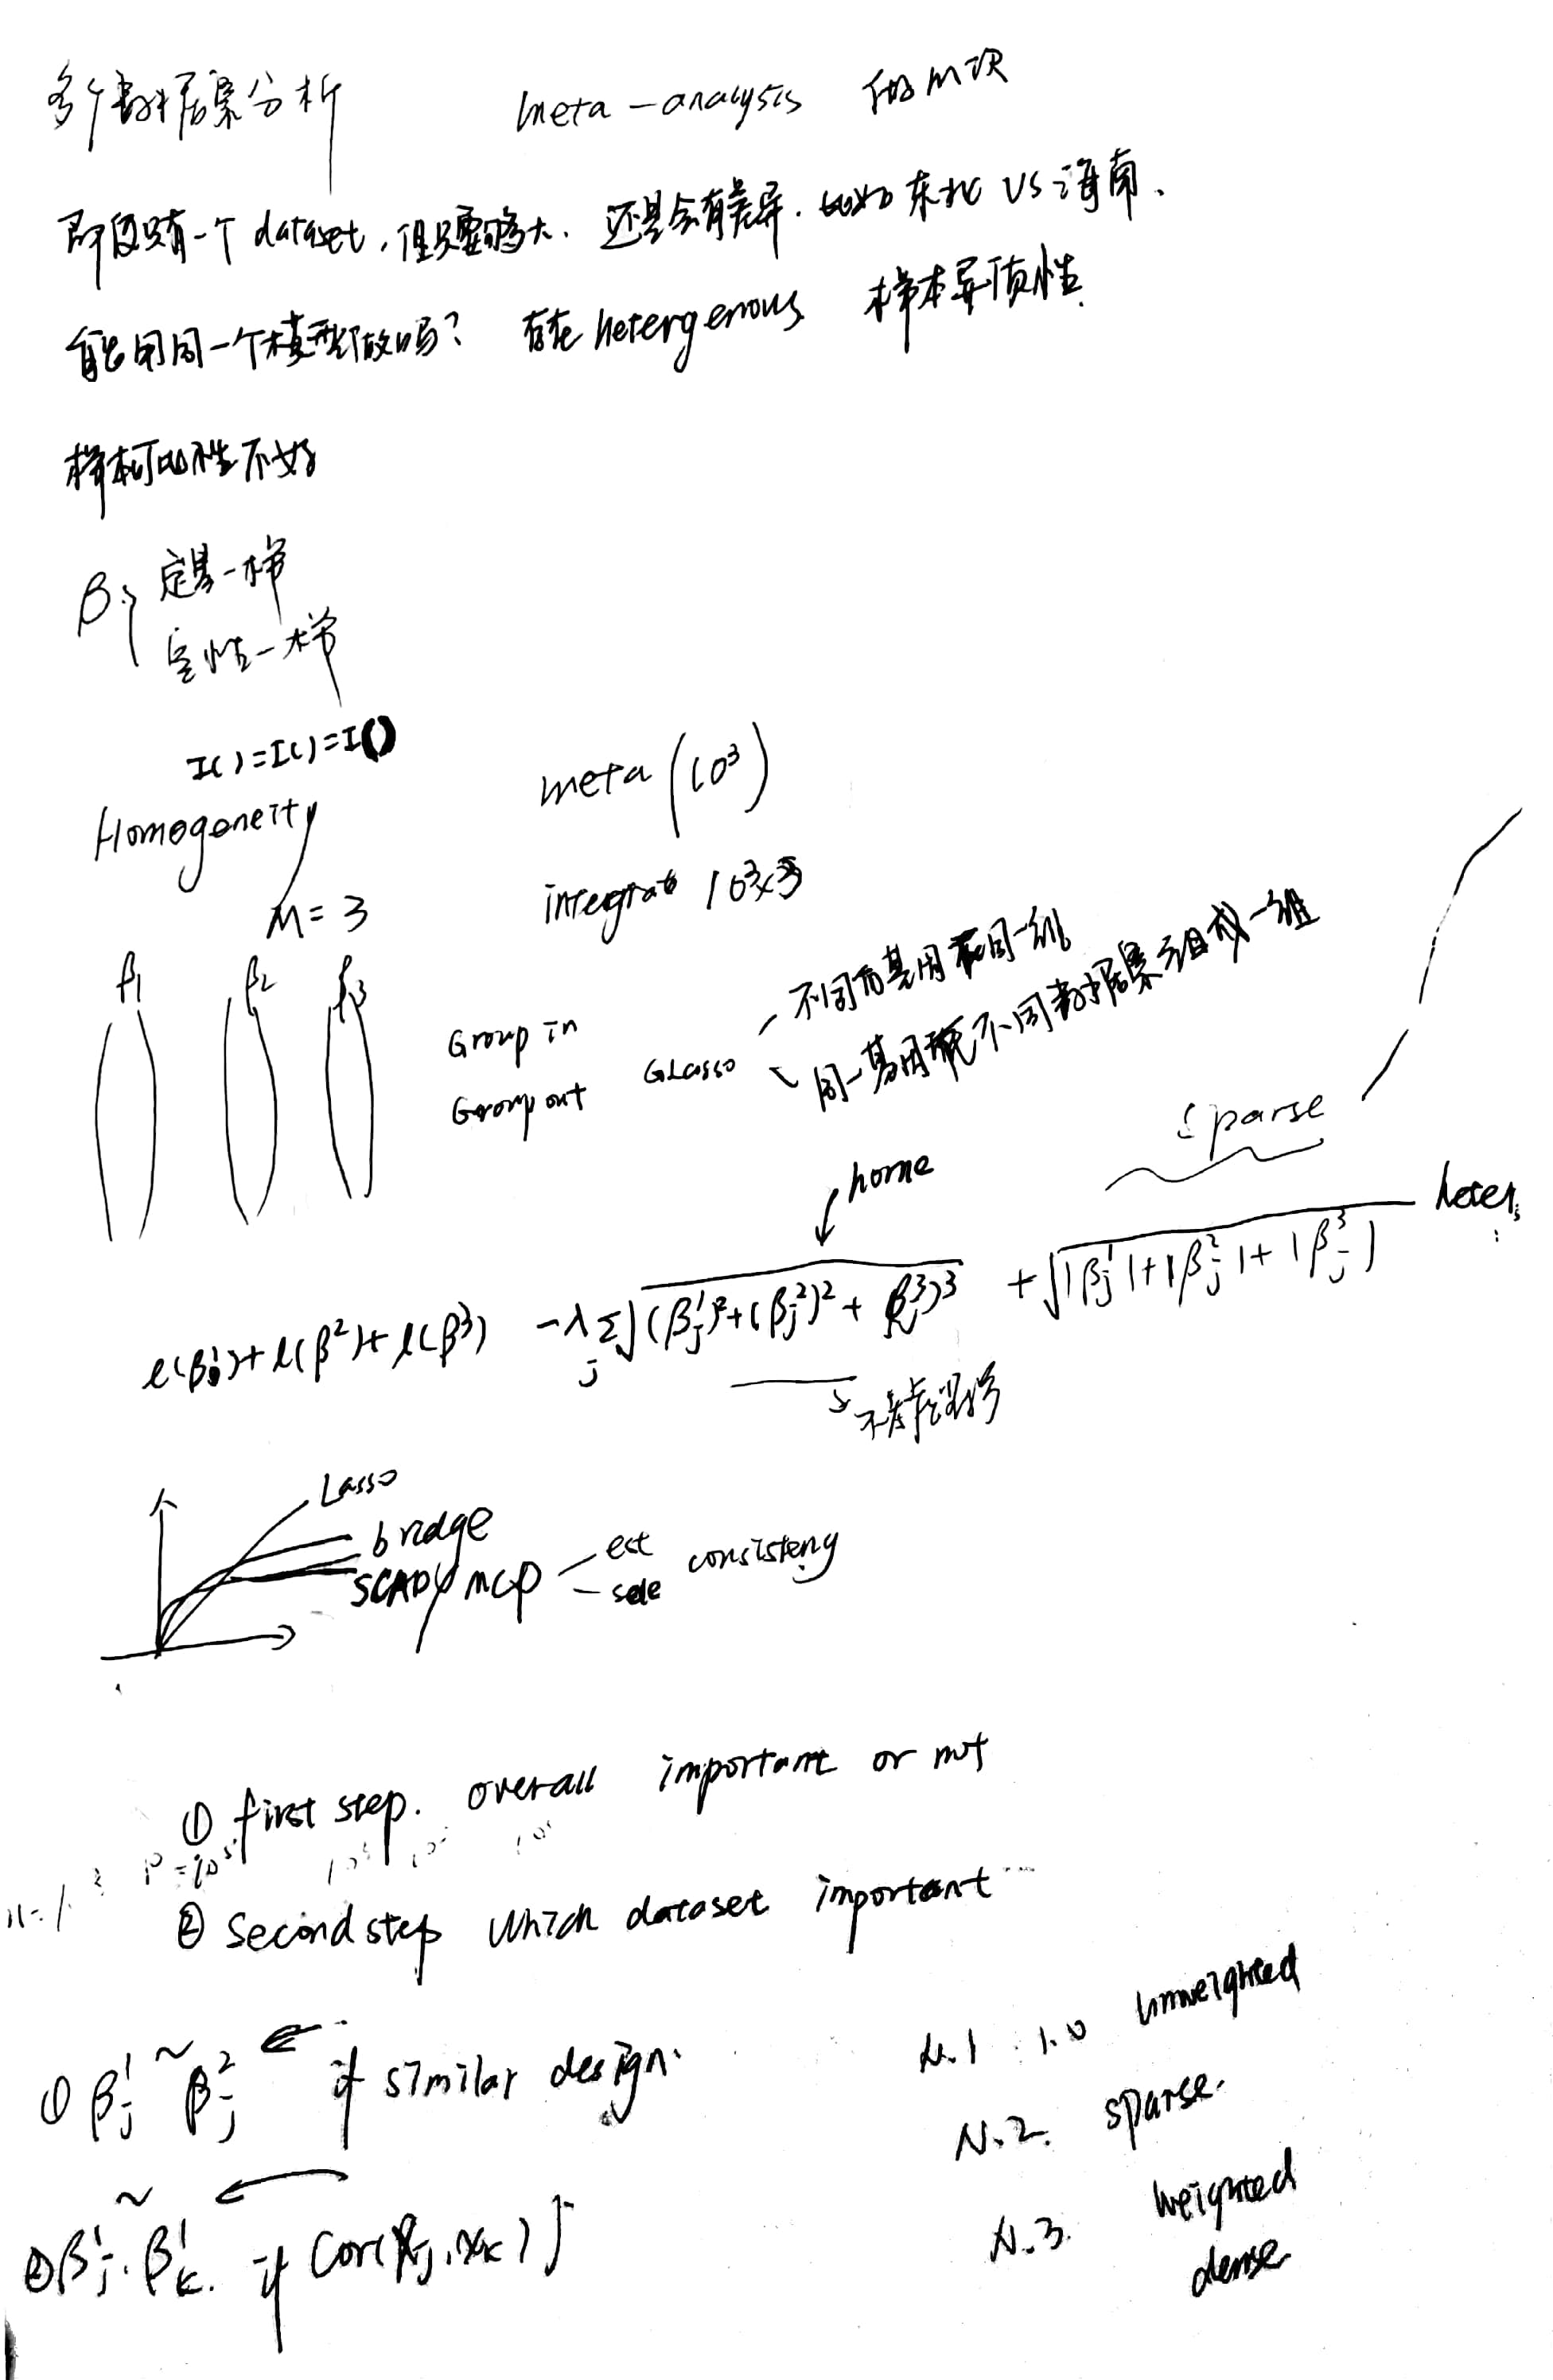 多个数据集分析 meta-analysis
即使只有一个 dataset, 但只要够大, 还是会有差异. 比如东北 VS 海南.
能用同一个模型做吗? 存在 hetergenous 样本异质性
样本可比性不好
β { 定量一样
定性一样
I()=I()=I()
Homogeneity
meta (10³)
M=3
integrat 10³×3
β1 β2 β3
Group in
Group out
GLasso
不同的基因在同一组
同一基因不同数据集组成一组
sparse
home
heter
l(β¹)+l(β²)+l(β³) -λ Σ_j √((β_j¹)²+(β_j²)²+(β_j³)³ + √(|β_j¹|+|β_j²|+|β_j³|)
Lasso
bridge
SCAD/MCP < est sele consisteny
① first step. overall important or not
P=10⁵
② Second step which dataset important
① β_j¹ ~ β_j² ← if similar design.
② β_j¹. β_k¹. ~ ← if Cor(x_j, x_k)
N.1 1.0 unweighted
N.2. sparse.
N.3. weighted
dense